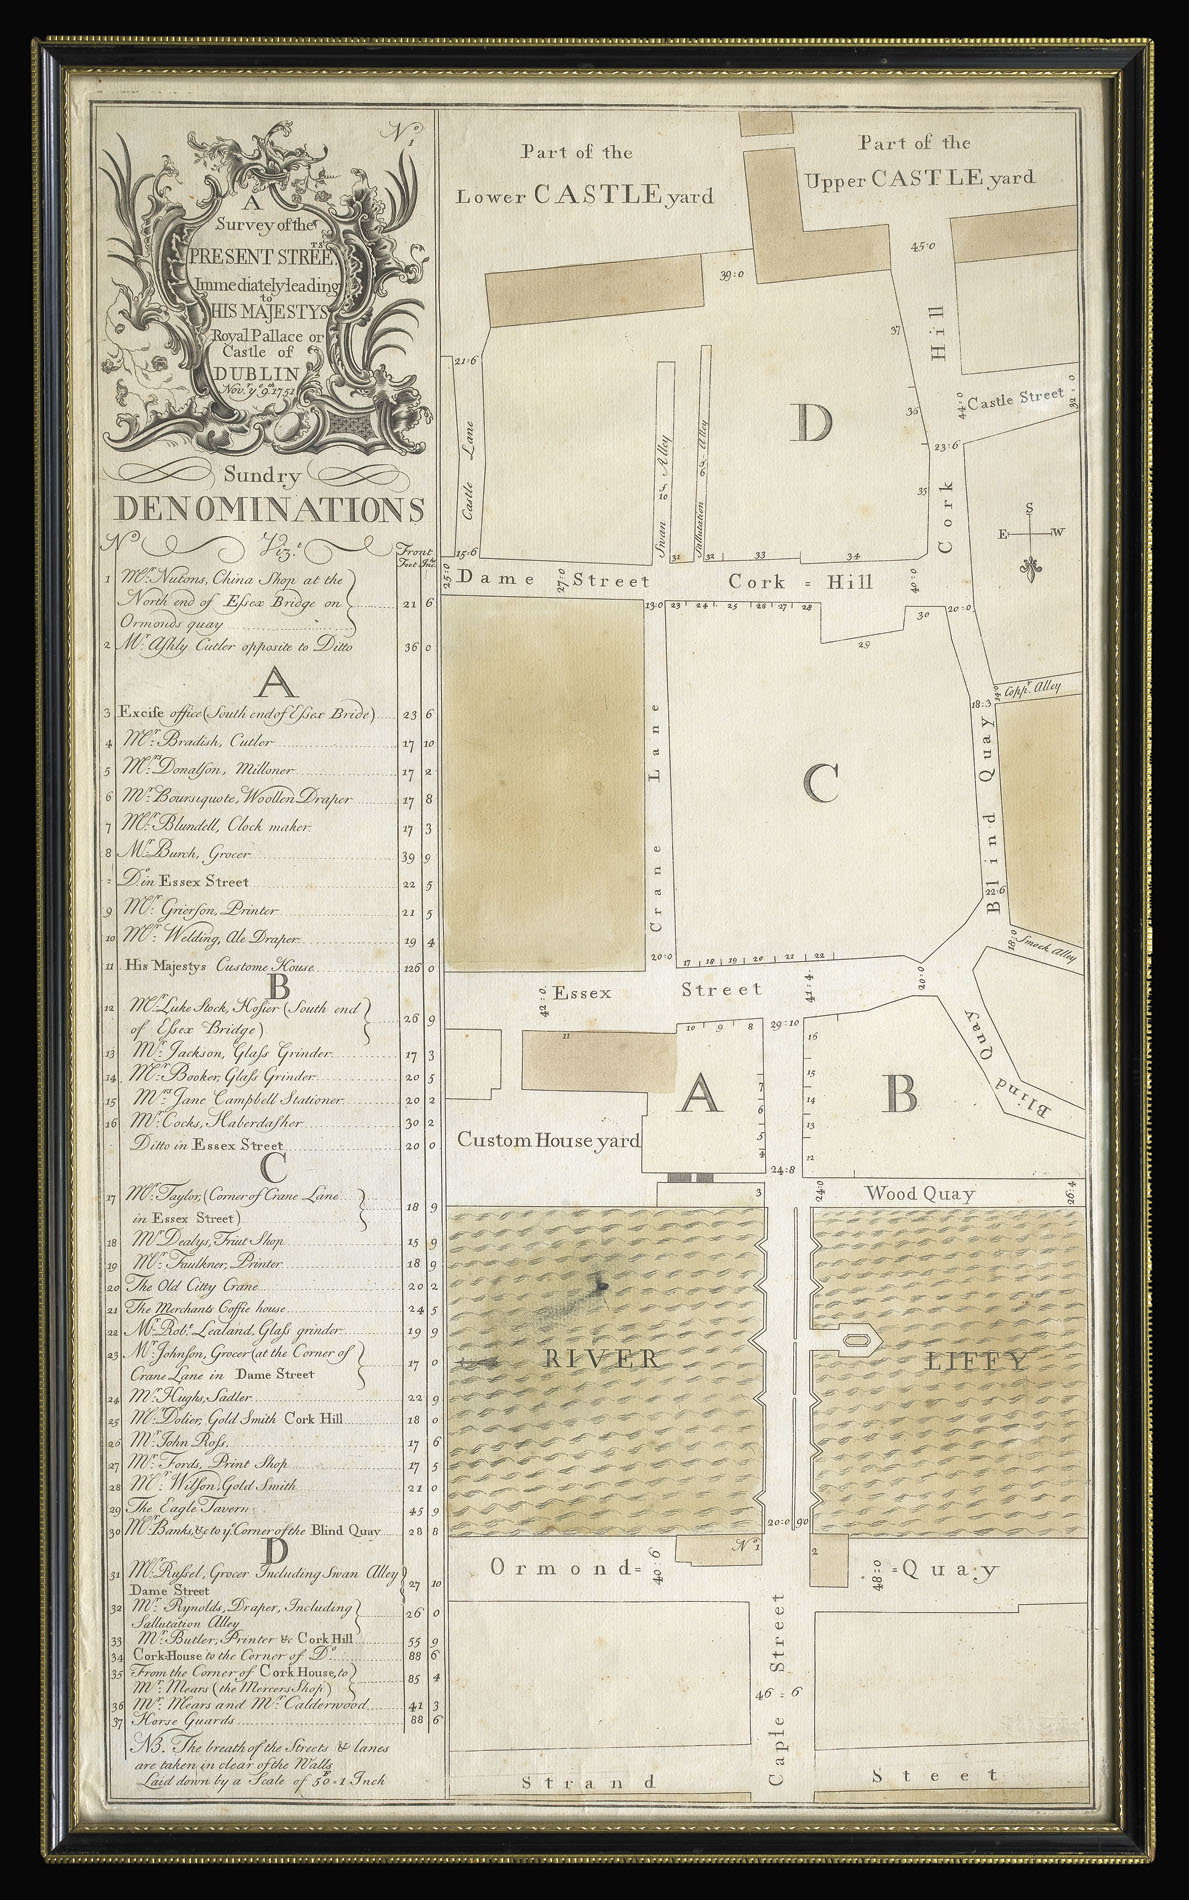 No. 1
A
Survey of the
PRESENT STREETS
Immediately leading
to
HIS MAJESTYS
Royal Pallace or
Castle of
DUBLIN
Novr. ye. 9th. 1751
Sundry
DENOMINATIONS
No. Vizt.
Front
Feet Ins
1 Mr. Nutons, China Shop at the
North end of Essex Bridge on 21 6
Ormonds quay
2 Mr. Ashly Cutler opposite to Ditto 36 0
A
3 Excise office (South end of Essex Bride) 23 6
4 Mr. Bradish, Cutler 17 10
5 Mrs. Donalson, Milloner 17 2
6 Mr. Boursiquote, Woollen Draper 17 8
7 Mr. Blundell, Clock maker 17 3
8 Mr. Burch, Grocer 39 9
= Do. in Essex Street 22 5
9 Mr. Grierson, Printer 21 5
10 Mr. Welding, Ale Draper 19 4
11 His Majestys Custome House 126 0
B
12 Mr. Luke Stock, Hosier (South end
of Essex Bridge) 26 9
13 Mr. Jackson, Glass Grinder 17 3
14 Mr. Booker, Glass Grinder 20 5
15 Mrs. Jane Campbell Stationer 20 2
16 Mr. Cocks, Haberdasher 30 2
Ditto in Essex Street 20 0
C
17 Mr. Taylor, (Corner of Crane Lane
in Essex Street) 18 9
18 Mr. Dealys, Friut Shop 15 9
19 Mr. Faulkner, Printer 18 9
20 The Old Citty Crane 20 2
21 The Merchants Coffie house 24 5
22 Mr. Robt. Lealand, Glass grinder 19 9
23 Mr. Johnson, Grocer (at the Corner of
Crane Lane in Dame Street 17 0
24 Mr. Hughs, Sadler 22 9
25 Mr. Dolier, Gold Smith Cork Hill 18 0
26 Mr. John Ross 17 6
27 Mr. Fords, Print Shop 17 5
28 Mr. Wilson, Gold Smith 21 0
29 The Eagle Tavern 45 9
30 Mr. Banks, &c to ye. Corner of the Blind Quay 28 8
D
31 Mr. Russel, Grocer Including Swan Alley
Dame Street 27 10
32 Mr. Rynolds, Draper, Including
Sallutation Alley 26 0
33 Mr. Butler, Printer &c Cork Hill 55 9
34 Cork-House to the Corner of Do. 88 6
35 From the Corner of Cork House, to
Mr. Mears (the Mercers Shop) 85 4
36 Mr. Mears and Mr. Calderwood 41 3
37 Horse Guards 88 6
NB. The breath of the Streets & lanes
are taken in clear of the Walls
Laid down by a Scale of 50F=1 Inch
Part of the
Lower CASTLE yard
Part of the
Upper CASTLE yard
45:0
39:0
37
Hill
21:6
Castle Street
32:0
44:0
36
D
23:6
Castle Lane
Swan Alley
5 10
Sallutation Alley
35
Cork
S
E W
15:6
31 32 33 34
25:0
Dame Street
27:0
Cork = Hill
40:0
13:0 23 24 25 26 27 28
29
30
20:0
14:0
Copr. Alley
18:3
Crane Lane
C
Blind Quay
22:6
18:0
Smock Alley
20:0 17 18 19 20 21 22
20:0
42:0
Essex Street
41:4
11
10 9 8
29:10
16
15
14
13
12
7
6
5
4
A
B
Blind Quay
Custom House yard
24:8
3
24:0
Wood Quay
26:4
RIVER LIFFY
20:0 90
No. 1
2
Ormond= 40:6
48:0 =Quay
Caple Street
46=6
Strand Steet